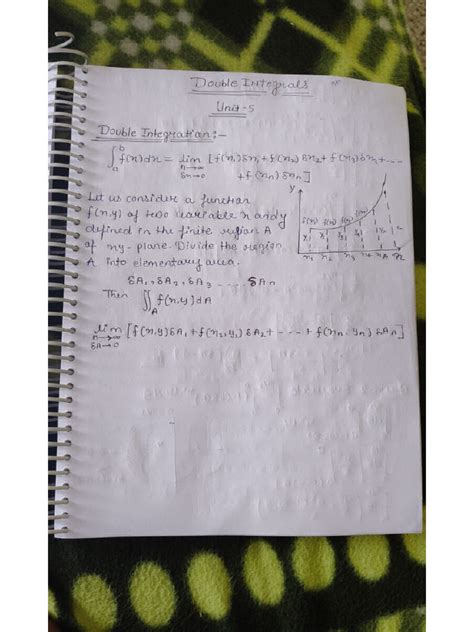 Double Integrals
Unit-5
Double Integration:-
∫ₐᵇ f(x)dx = lim n→∞ δn→0 [f(x₁)δx₁+f(x₂)δx₂+f(x₃)δx₃+---
+f(xn)δxn]
Let us consider a function
f(x,y) of two variable x and y
defined in the finite region A
of xy-plane. Divide the region
A into elementary area.
δA₁, δA₂, δA₃ ... δAn
Then ∬_A f(x,y)dA
lim n→∞ δA→0 [f(x,y)δA₁+f(x₂,y₂)δA₂+----+f(xn,yn)δAn]
y
x₁ x₂ x₃ x₄